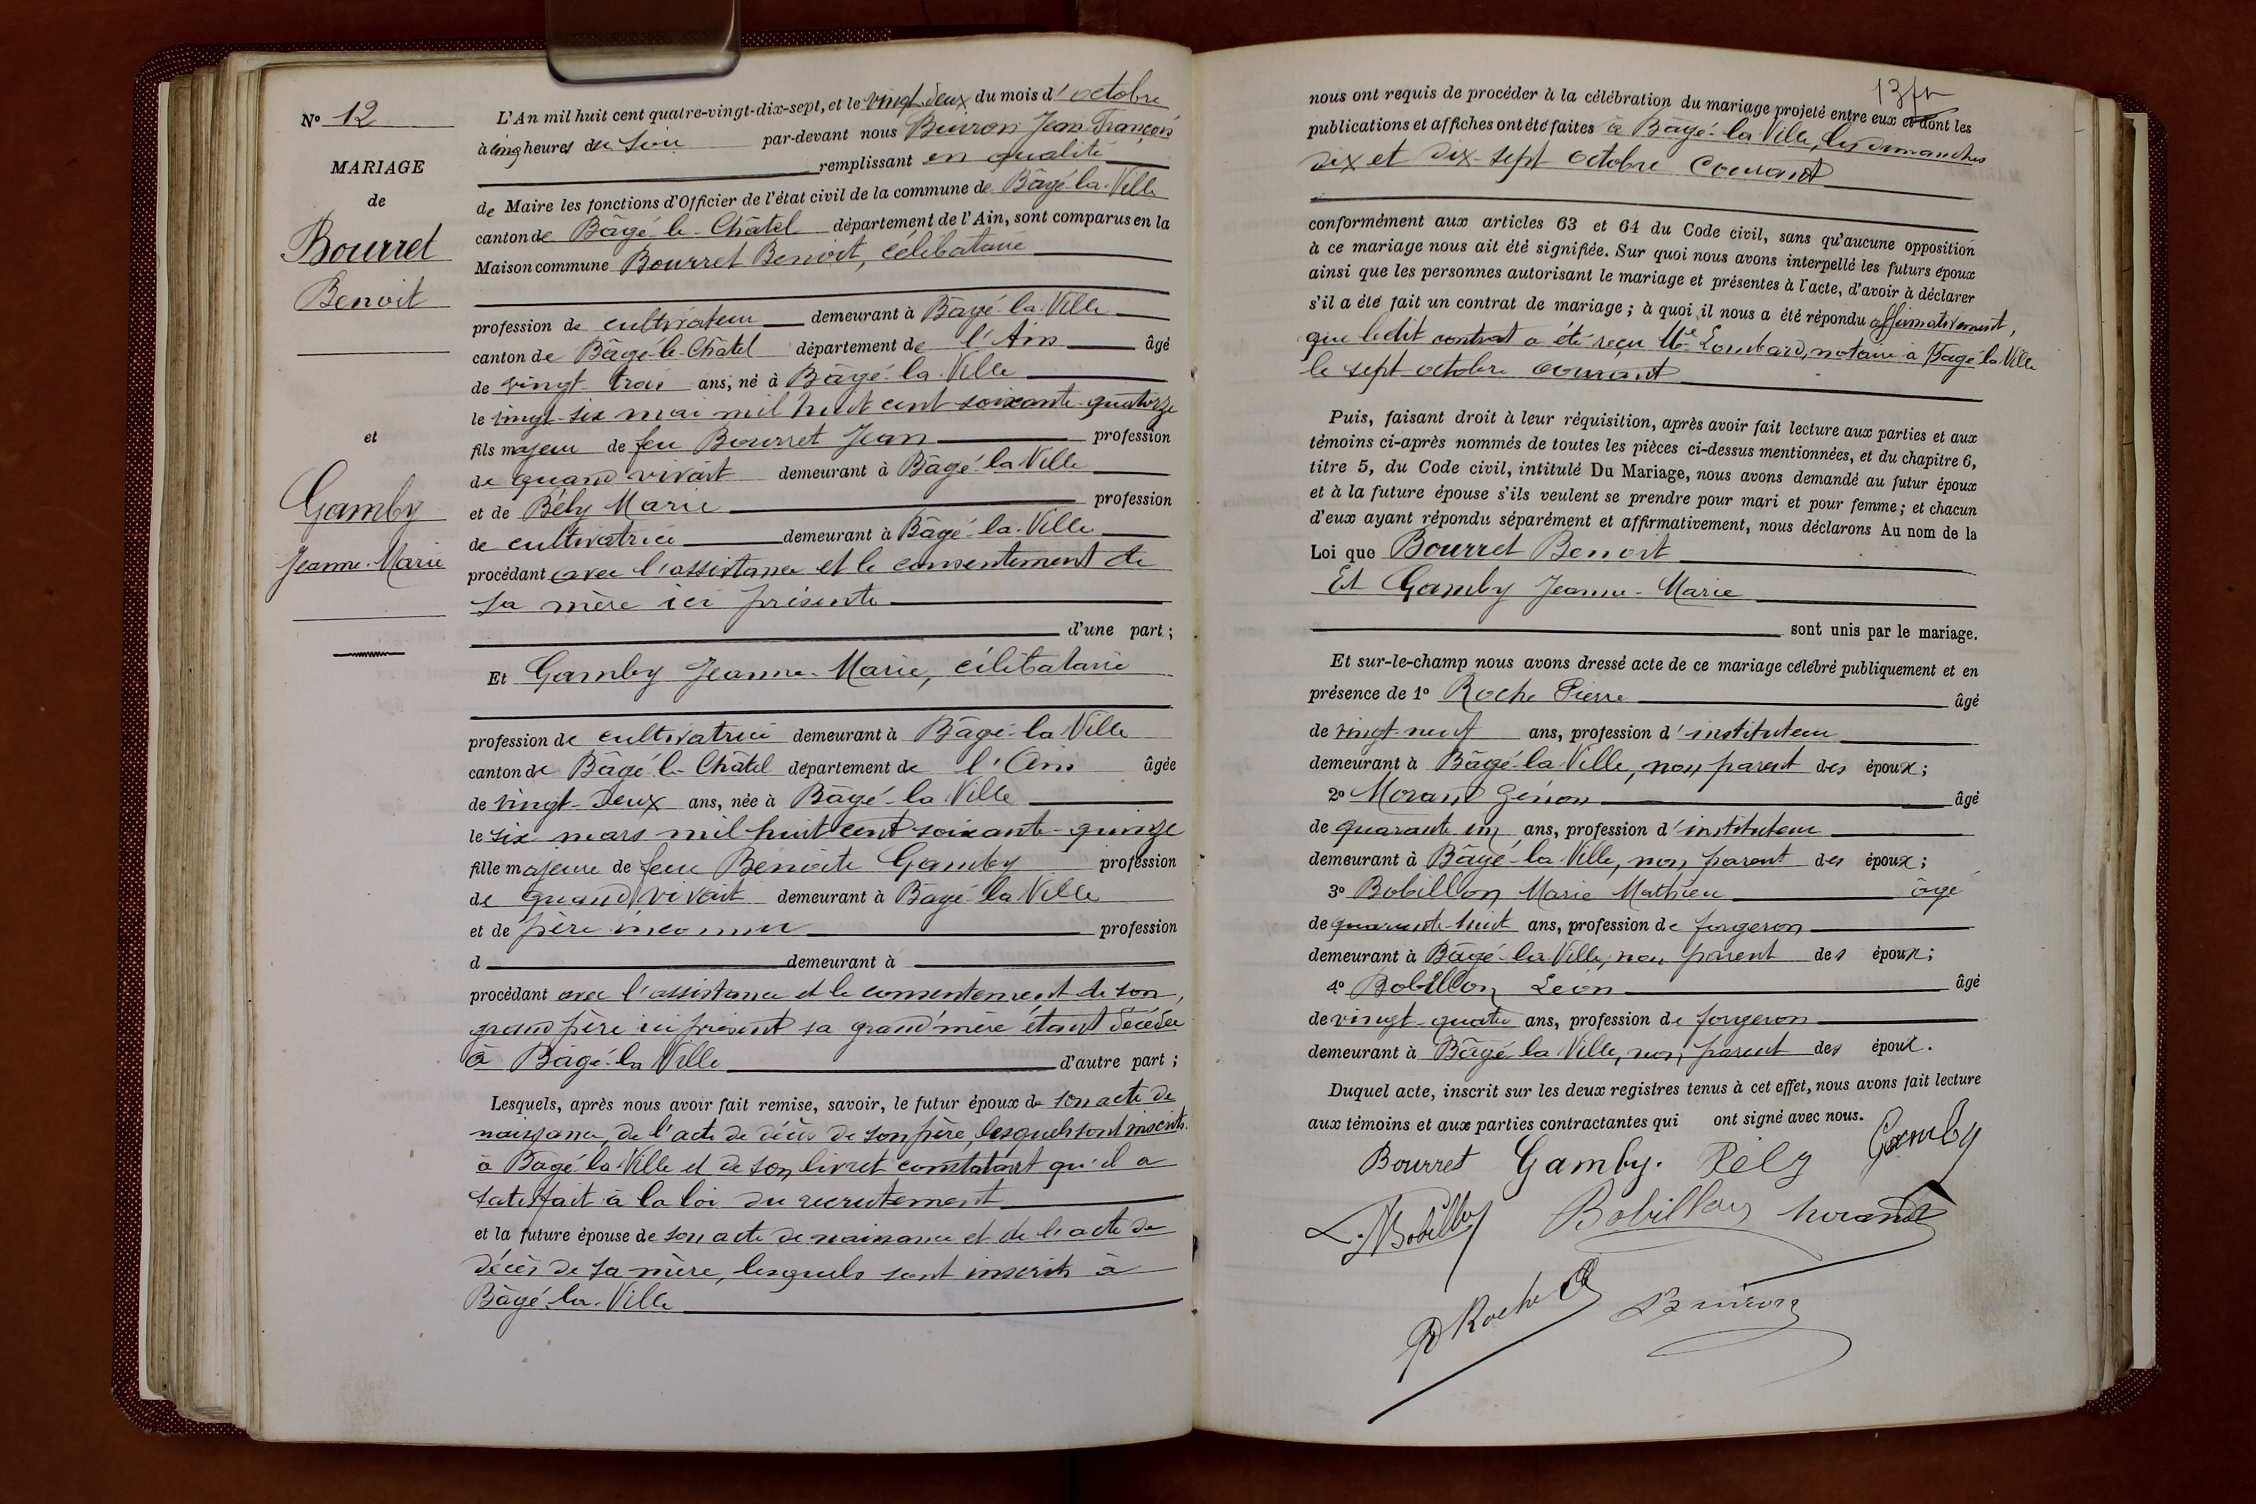 N° 12
MARIAGE
de
Bourret
Benoit
et
Gamby
Jeanne-Marie
L'An mil huit cent quatre-vingt-dix-sept, et le vingt-deux du mois d'octobre
à cinq heures du soir par-devant nous Buiron Jean François
remplissant en qualité
de Maire les fonctions d'Officier de l'état civil de la commune de Bâgé-la-Ville
canton de Bâgé-le-Châtel département de l'Ain, sont comparus en la
Maison commune Bourret Benoit, célibataire
profession de cultivateur demeurant à Bâgé-la-Ville
canton de Bâgé-le-Châtel département de l'Ain âgé
de vingt-trois ans, né à Bâgé-la-Ville
le vingt-six mai mil huit cent soixante-quatorze
fils majeur de feu Bourret Jean profession
de quand vivait demeurant à Bâgé-la-Ville
et de Bély Marie profession
de cultivatrice demeurant à Bâgé-la-Ville
procédant avec l'assistance et le consentement de
sa mère ici présente
d'une part;
Et Gamby Jeanne-Marie, célibataire
profession de cultivatrice demeurant à Bâgé-la-Ville
canton de Bâgé-le-Châtel département de l'Ain âgée
de vingt-deux ans, née à Bâgé-la-Ville
le six mars mil huit cent soixante-quinze
fille majeure de feue Benoite Gamby profession
de quand vivait demeurant à Bâgé-la-Ville
et de père inconnu profession
d demeurant à
procédant avec l'assistance et le consentement de son
grand père ici présent sa grand'mère étant décédée
à Bâgé-la-Ville d'autre part;
Lesquels, après nous avoir fait remise, savoir, le futur époux de son acte de
naissance, de l'acte de décès de son père, lesquels sont inscrits
à Bâgé-la-Ville et de son livret constatant qu'il a
satisfait à la loi du recrutement
et la future épouse de son acte de naissance et de l'acte de
décès de sa mère, lesquels sont inscrits à
Bâgé-la-Ville
nous ont requis de procéder à la célébration du mariage projeté entre eux et dont les
publications et affiches ont été faites à Bâgé-la-Ville, les dimanches
dix et dix-sept octobre courant
conformément aux articles 63 et 64 du Code civil, sans qu'aucune opposition
à ce mariage nous ait été signifiée. Sur quoi nous avons interpellé les futurs époux
ainsi que les personnes autorisant le mariage et présentes à l'acte, d'avoir à déclarer
s'il a été fait un contrat de mariage; à quoi il nous a été répondu affirmativement,
que ledit contrat a été reçu Me Lombard, notaire à Bâgé-la-Ville
le sept octobre courant
Puis, faisant droit à leur réquisition, après avoir fait lecture aux parties et aux
témoins ci-après nommés de toutes les pièces ci-dessus mentionnées, et du chapitre 6,
titre 5, du Code civil, intitulé Du Mariage, nous avons demandé au futur époux
et à la future épouse s'ils veulent se prendre pour mari et pour femme; et chacun
d'eux ayant répondu séparément et affirmativement, nous déclarons Au nom de la
Loi que Bourret Benoit
Et Gamby Jeanne-Marie
sont unis par le mariage.
Et sur-le-champ nous avons dressé acte de ce mariage célébré publiquement et en
présence de 1° Roche Pierre âgé
de vingt-neuf ans, profession d'instituteur
demeurant à Bâgé-la-Ville, non parent des époux;
2° Morand Zénon âgé
de quarante un ans, profession d'instituteur
demeurant à Bâgé-la-Ville, non parent des époux;
3° Bobillon Marie Mathieu âgé
de quarante-huit ans, profession de forgeron
demeurant à Bâgé-la-Ville, non parent des époux;
4° Bobillon Léon âgé
de vingt-quatre ans, profession de forgeron
demeurant à Bâgé-la-Ville, non parent des époux.
Duquel acte, inscrit sur les deux registres tenus à cet effet, nous avons fait lecture
aux témoins et aux parties contractantes qui ont signé avec nous.
Bourret Gamby. Bély Gamby
L. Bobillon Bobillon Morand
P Roche Buiron